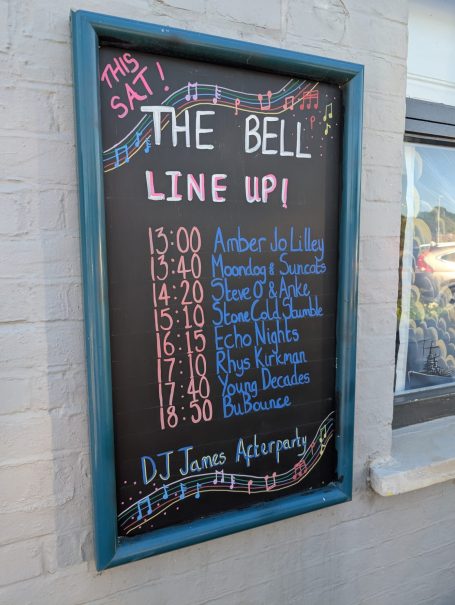 THIS
SAT!
THE BELL
LINE UP!
13:00 Amber Jo Lilley
13:40 Moondog & Suncats
14:20 Steve O' & Anke
15:10 Stone Cold Stumble
16:15 Echo Nights
17:10 Rhys Kirkman
17:40 Young Decades
18:50 BuBounce
DJ James Afterparty